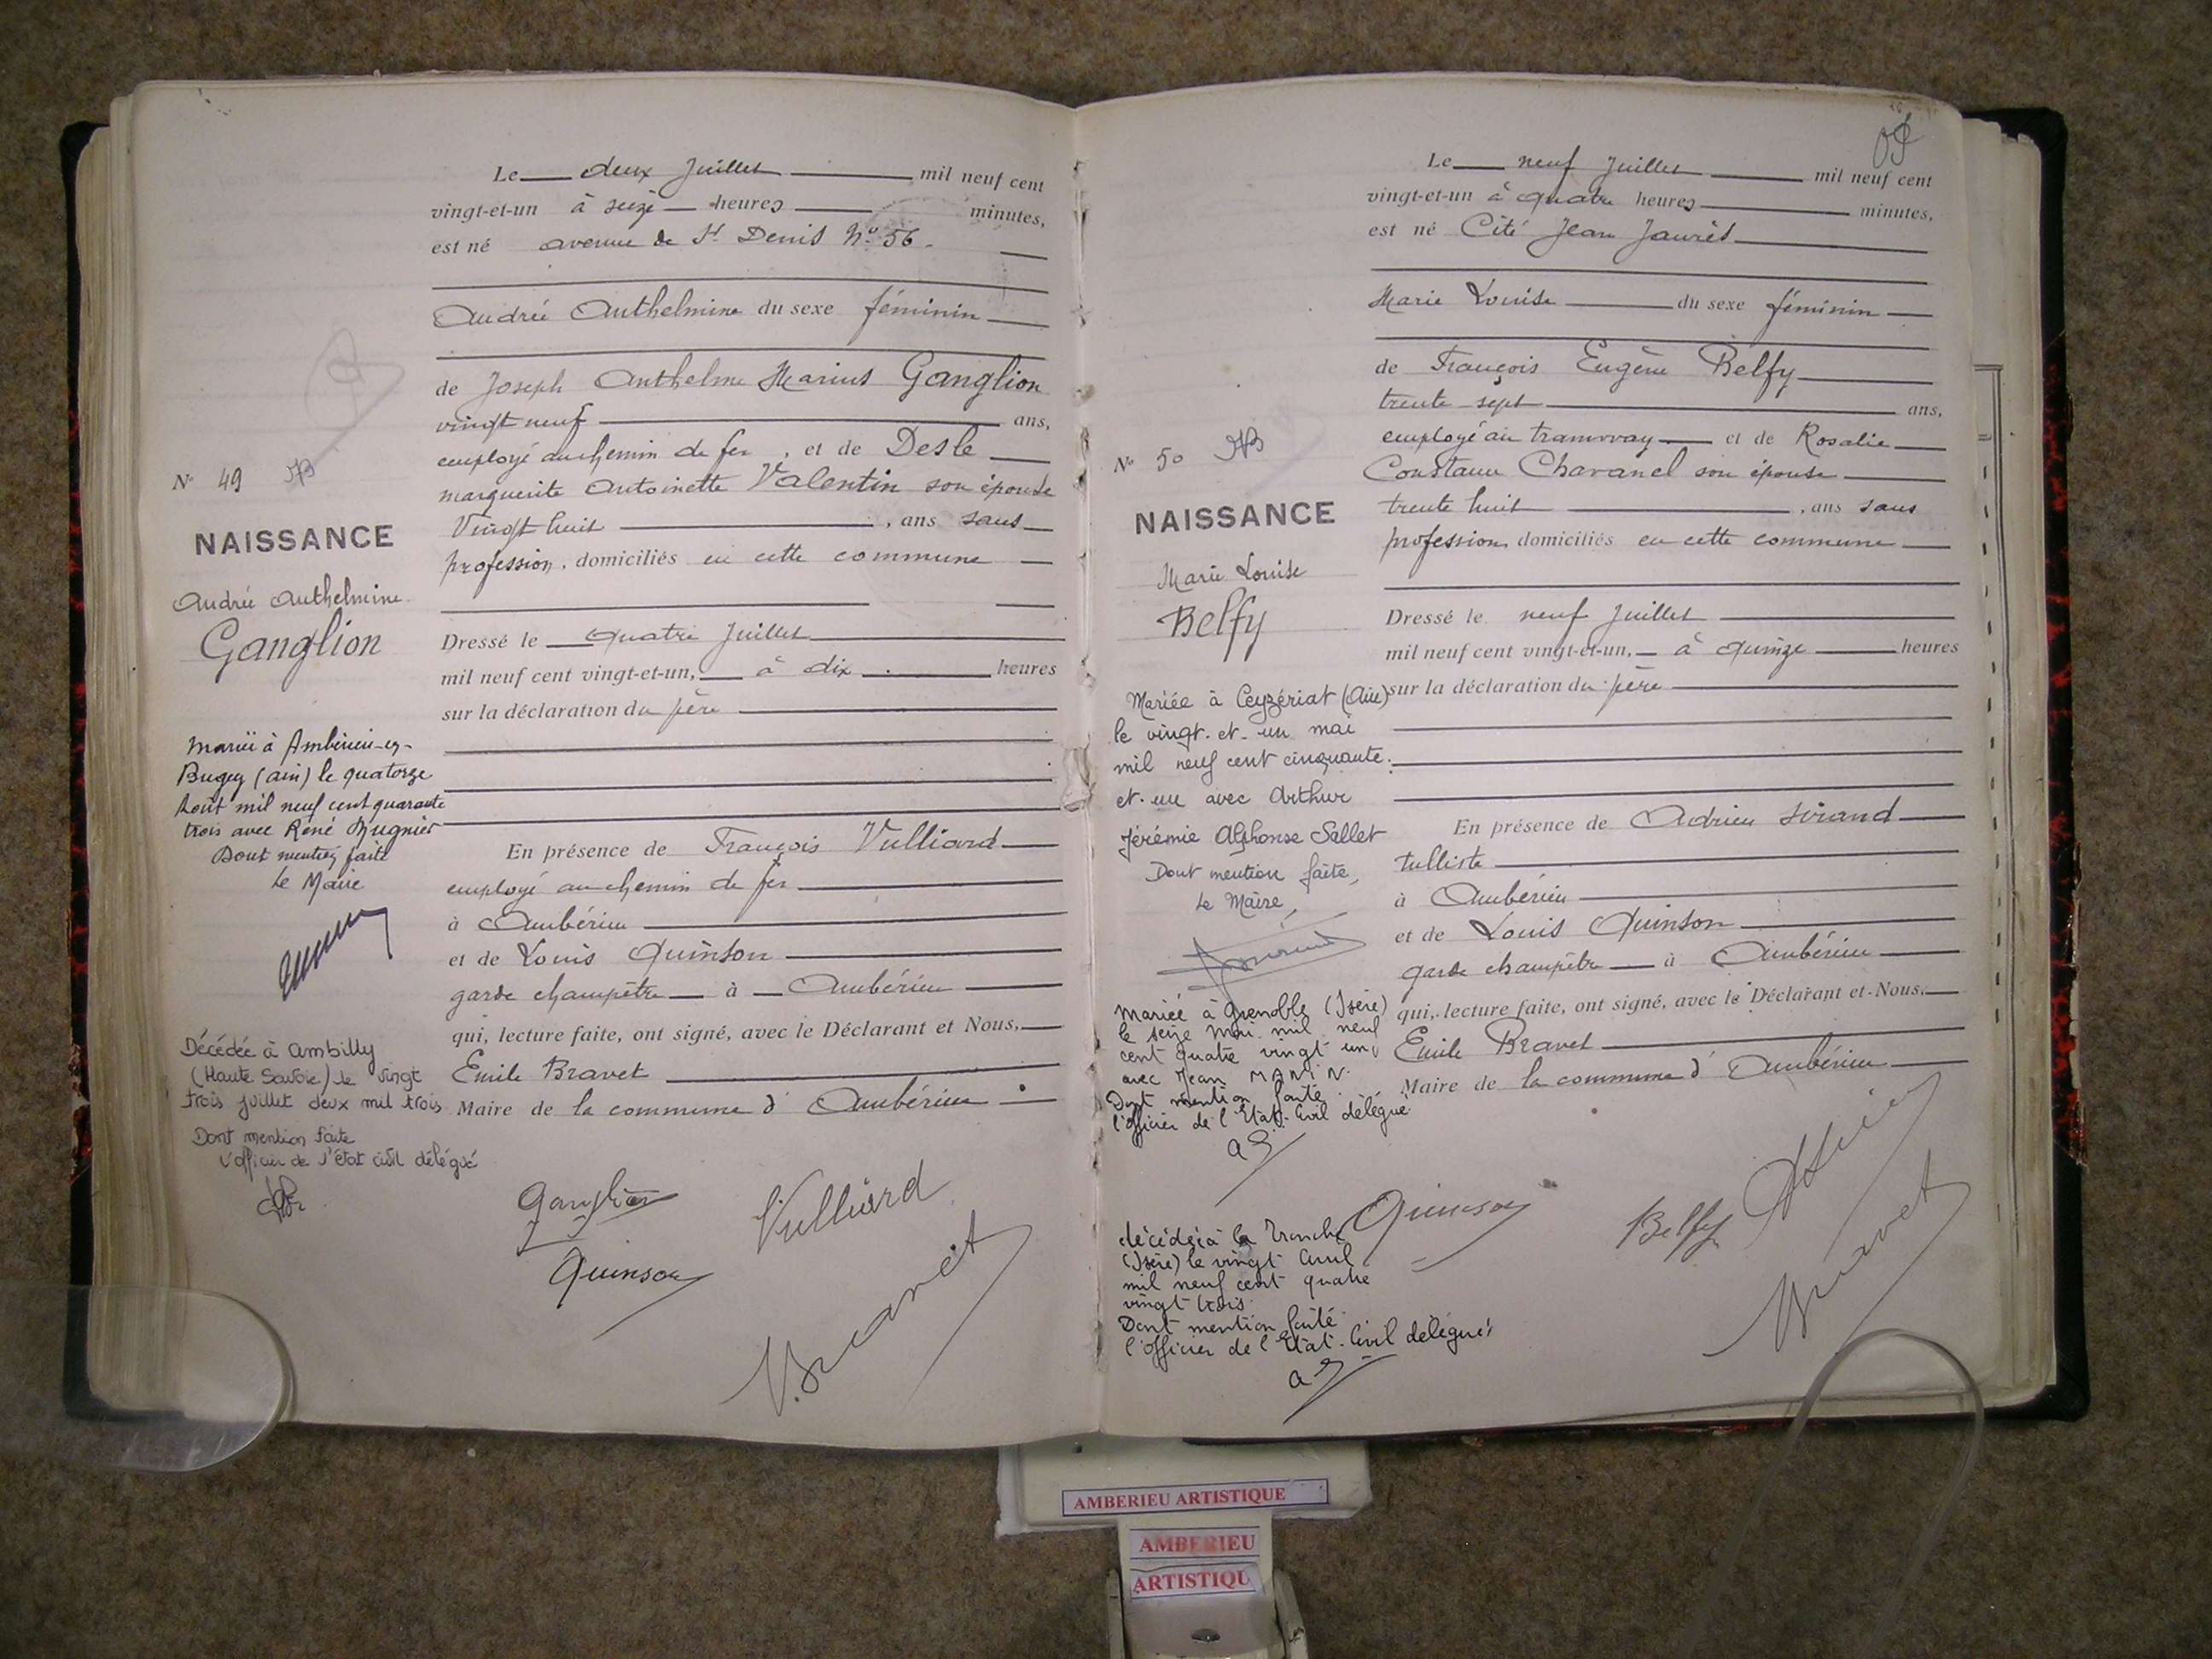 Le deux Juillet mil neuf cent
vingt-et-un à seize heures minutes,
est né avenue de St Denis No 56.
Andrée Anthelmine du sexe féminin
de Joseph Anthelme Marius Ganglion
vingt neuf ans,
employé au chemin de fer, et de Desle
marguerite Antoinette Valentin son épouse
Vingt huit , ans sans
profession, domiciliés en cette commune
No 49
NAISSANCE
Andrée Anthelmine
Ganglion
Dressé le quatre Juillet
mil neuf cent vingt-et-un, à dix heures
sur la déclaration du père
Mariée à Ambérieu-en-
Bugey (ain) le quatorze
Août mil neuf cent quarante
trois avec René Bugnier
Dont mention faite
Le Maire
En présence de François Vulliard
employé au chemin de fer
à Ambérieu
et de Louis Quinson
garde champêtre à Ambérieu
qui, lecture faite, ont signé, avec le Déclarant et Nous,
Emile Bravet
Maire de la commune d' Ambérieu
Décédée à Ambilly
(Haute Savoie) le vingt
trois juillet deux mil trois
Dont mention faite
L'officier de l'état civil délégué
Ganglion
Vulliard
Quinson
Bravet
Le neuf Juillet mil neuf cent
vingt-et-un à quatre heures minutes,
est né Cité Jean Jaurès
Marie Louise du sexe féminin
de François Eugène Belfy
trente sept ans,
employé au tramway et de Rosalie
Chavanel son épouse
trente huit , ans sans
profession, domiciliés en cette commune
No 50
NAISSANCE
Marie Louise
Belfy
Dressé le neuf Juillet
mil neuf cent vingt-et-un, à quinze heures
sur la déclaration du père
Mariée à Ceyzériat (Ain)
le vingt-et-un mai
mil neuf cent cinquante-
et-un avec Arthur
Jérémie Alphonse Sallet
Dont mention faite,
Le Maire,
En présence de Adrien Sirand
tulliste
à Ambérieu
et de Louis Quinson
garde champêtre à Ambérieu
qui, lecture faite, ont signé, avec le Déclarant et Nous.
Emile Bravet
Maire de la commune d' Ambérieu
Mariée à Grenoble (Isère)
le seize Mai mil neuf
cent quatre vingt un
avec Jean MARTIN.
Dont mention faite
l'officier de l'Etat-Civil délégué
Quinson
Belfy
Bravet
décédée à la Tronche
(Isère) le vingt Avril
mil neuf cent quatre
vingt trois
Dont mention faite
l'officier de l'Etat-Civil délégué
AMBERIEU ARTISTIQUE
AMBERIEU
ARTISTIQU